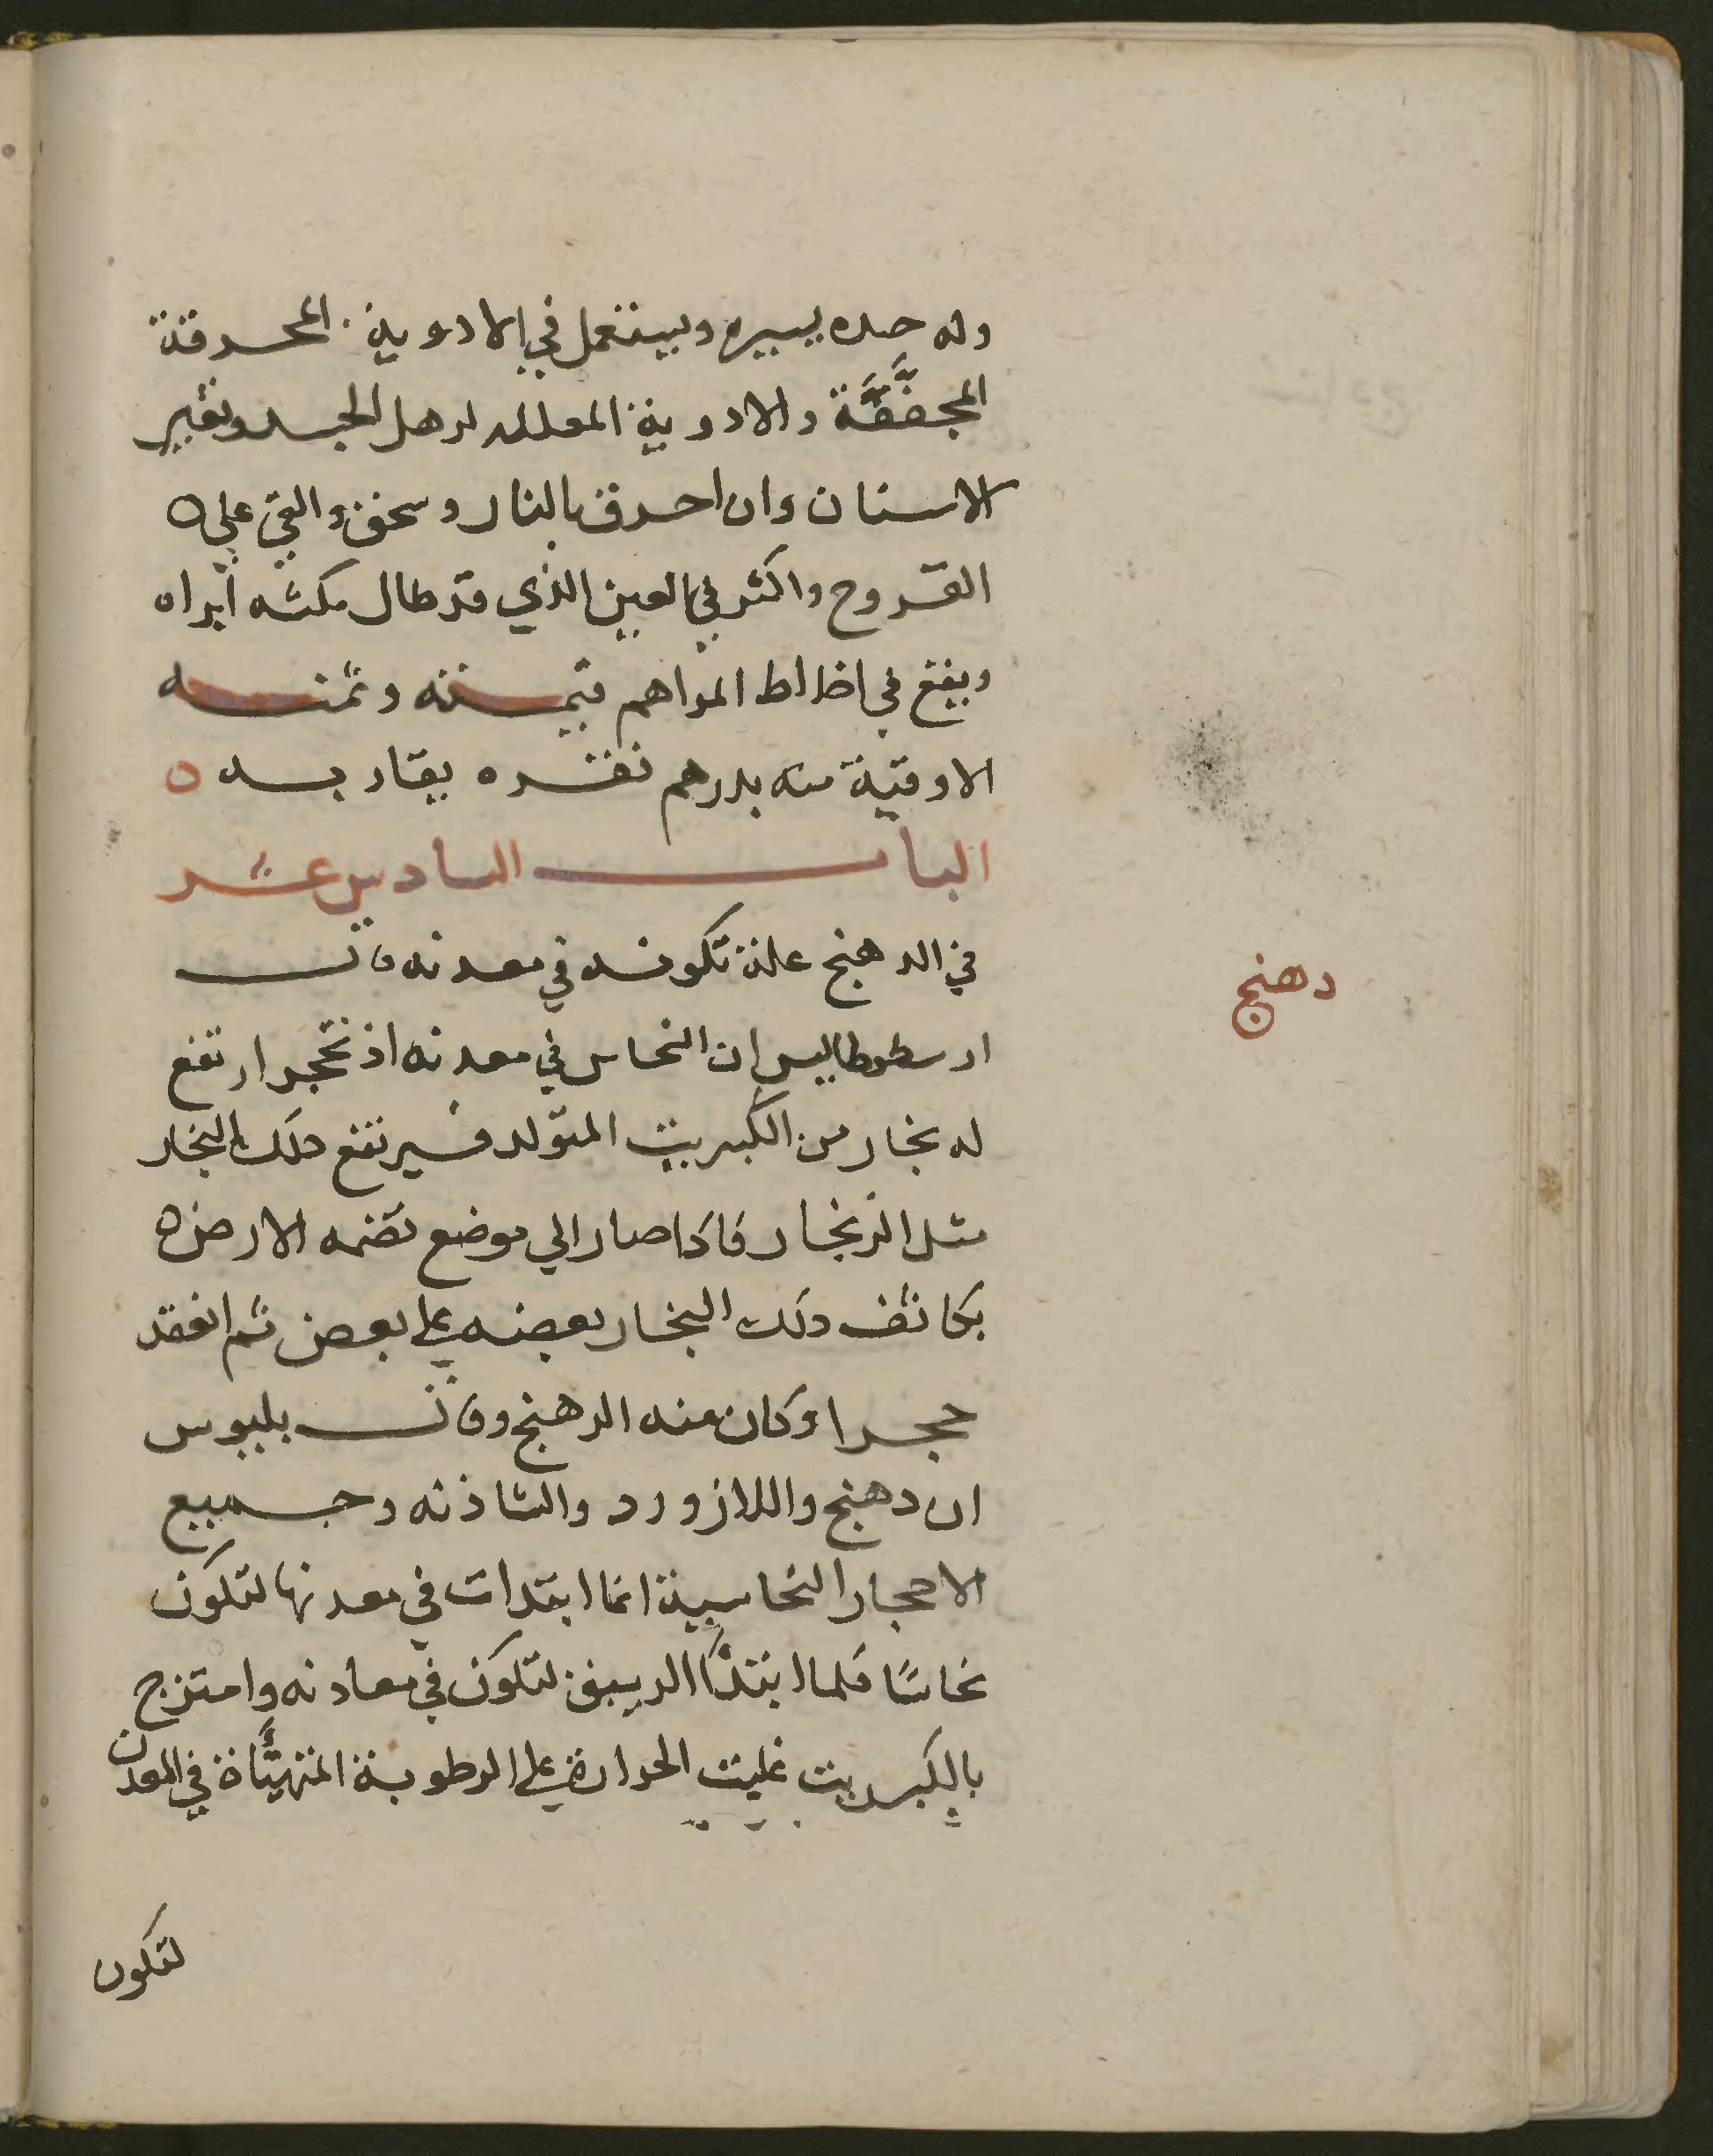 وله حده يسيره ويستعمل في الادوية المحرقة
المجففة والادوية المعلله لرهل الجسد وتغير
الاسنان وان احرق بالنار وسحق والقي علي
القروح واكثر في العين الذي قد طال مكثه ابراه
ويقع في اخلاط المراهم قيمته وثمنه
الاوقية منه بدرهم نقره يقاربه
الباب السادس عشر
في الدهنج علة تكونه في معدنه قال
دهنج
ارسطوطاليس ان النحاس في معدنه اذ تحجر ارتفع
له بخار من الكبريت المتولد فيرتفع ذلك البخار
مثل الزنجار فاذا صار الي موضع تضمه الارض
تكاثف ذلك البخار بعضه علي بعض ثم انعقد
حجرا وكان منه الدهنج وقال بلينوس
ان دهنج واللازورد والشاذنه وجميع
الاحجار النحاسية انما ابتدات في معدنها لتكون
نحاسًا فلما ابتدا الريبق لتكون في معادنه وامتزج
بالكبريت غلبت الحرارة علي الرطوبة المتهيأة في المعدن
لتكون